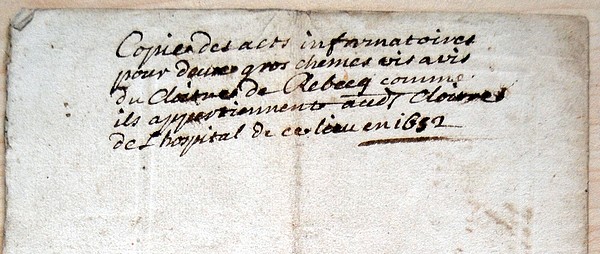 Copie des acts informatoires
pour deux gros chemes vis avis
du Cloistres de Rebecq comme
ils appertiennent audt Cloistres
de L'hospital de ce lieu en 1652